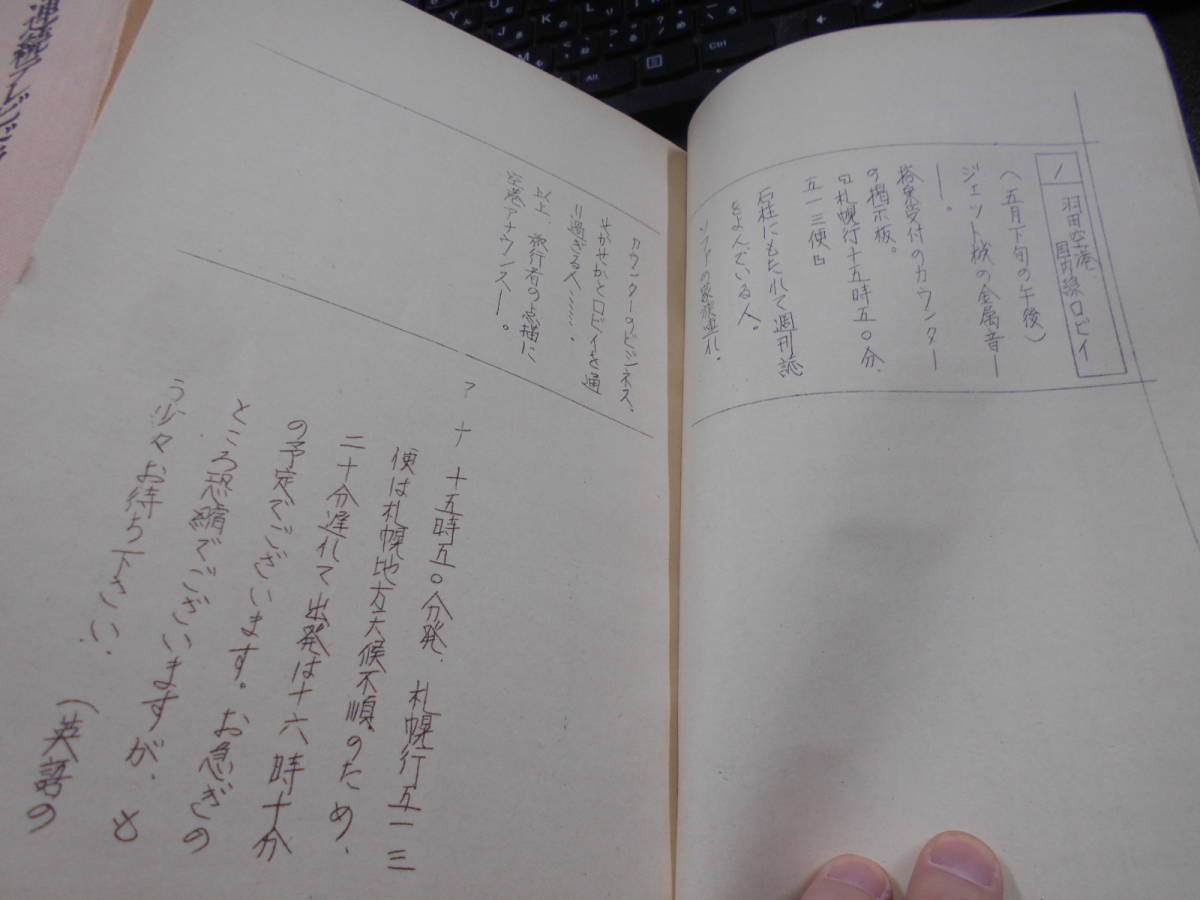 1
羽田空港、
国内線ロビイ
（五月下旬の午後）
ジェット機の金属音―
―。
搭乗受付のカウンター
の掲示板。
札幌行十五時五〇分、
五一三便
石柱にもたれて週刊誌
をよんでいる人。
ソファの家族連れ。
カウンターのビジネス、
せかせかとロビイを通
り過ぎる人……。
以上、旅行者の点描に
空港アナウンス―。
ア ナ 十五時五〇分発、札幌行五一三
便は札幌地方天候不順のため、
二十分遅れて出発は十六時十分
の予定でございます。お急ぎの
ところ恐縮でございますが、も
う少々お待ち下さい、
（英語の
連続テレビドラ